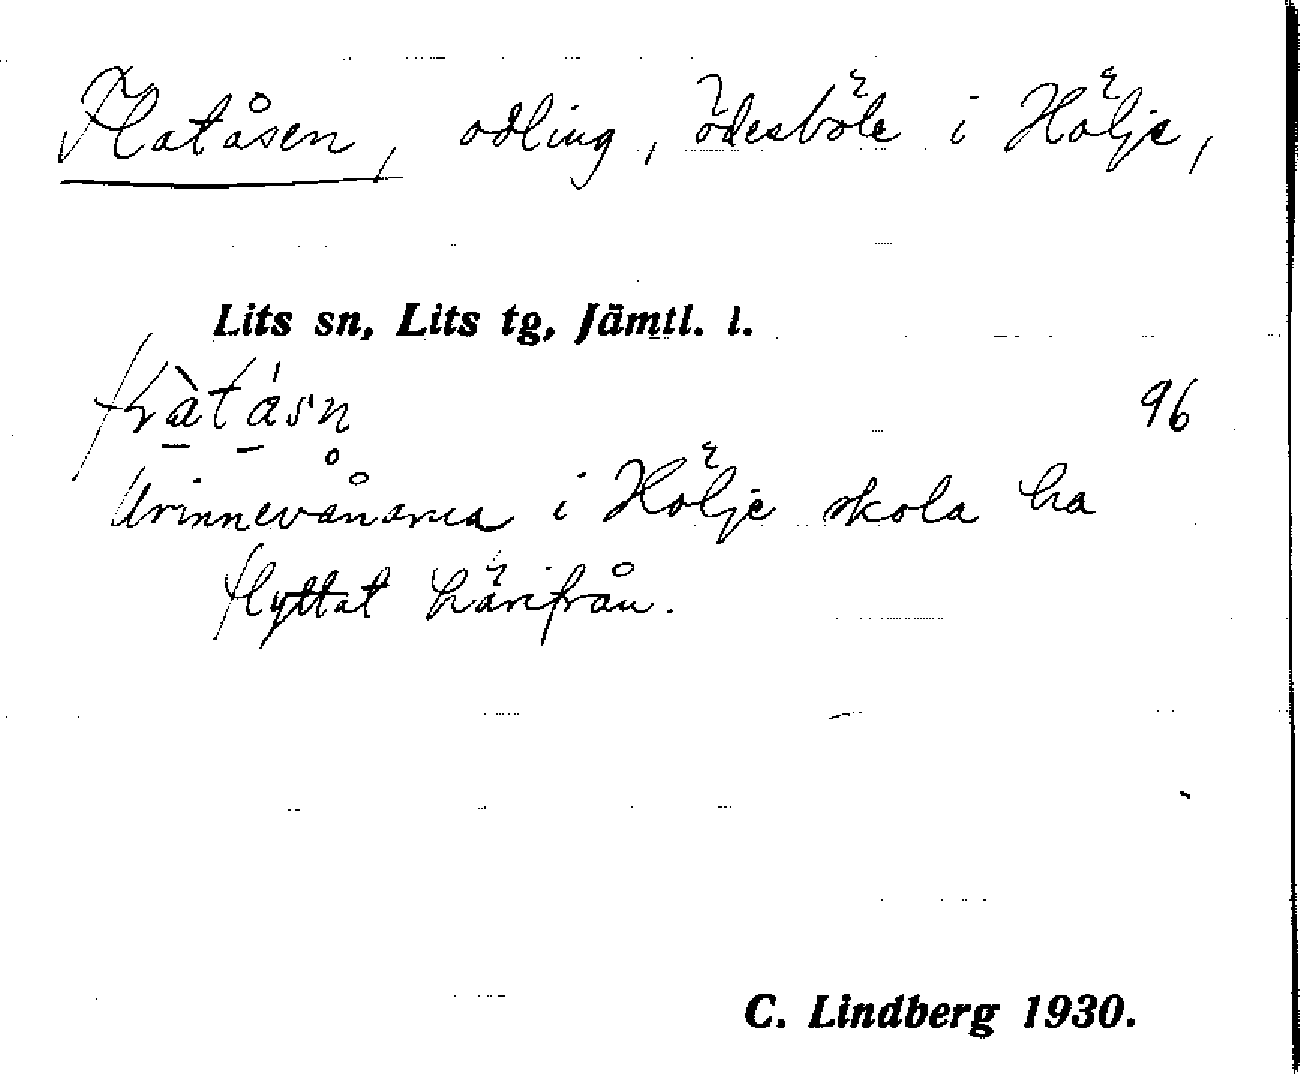 Flatåsen, odling, ödesböle i Hölje,
Lits sn, Lits tg, Jämtl. l.
96
Urinnevånarna i Hölje skola ha
flyttat härifrån.
C. Lindberg 1930.